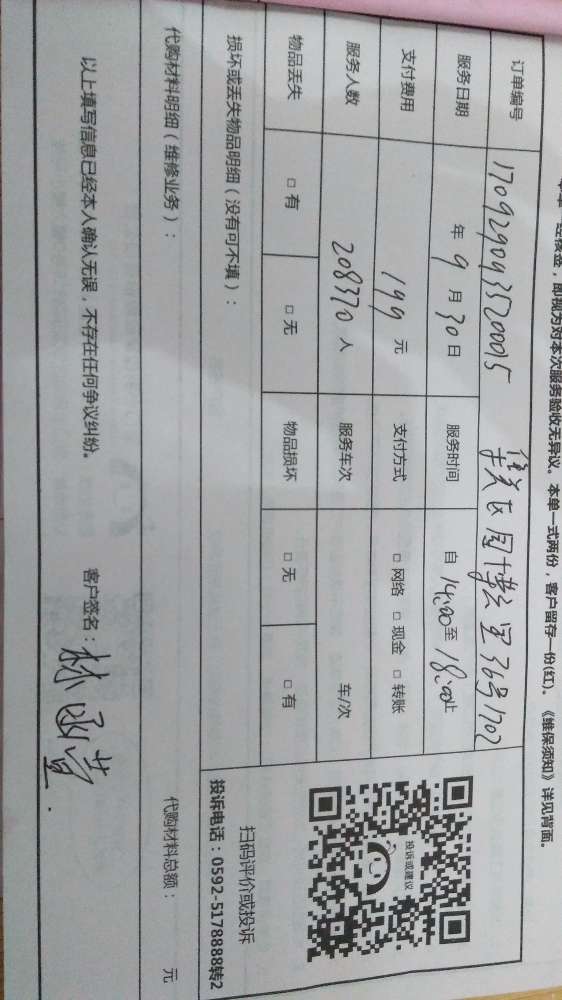 单单一经核签，即视为对本次服务验收无异议。本单一式两份，客户留存一份(红)。《维保须知》详见背面。
订单编号 170929093520015 集美区同博云里36号1702
服务日期 年 9 月 30 日 服务时间 自 14:00 至 18:00 止
支付费用 199 元 支付方式 □ 网络 □ 现金 □ 转账
服务人数 208370 人 服务车次 车/次
物品丢失 □ 有 □ 无 物品损坏 □ 无 □ 有
投诉或建议
扫码评价或投诉
投诉电话：0592-5178888转2
损坏或丢失物品明细（没有可不填）：
代购材料明细（维修业务）： 代购材料总额： 元
以上填写信息已经本人确认无误，不存在任何争议纠纷。 客户签名：林函萱